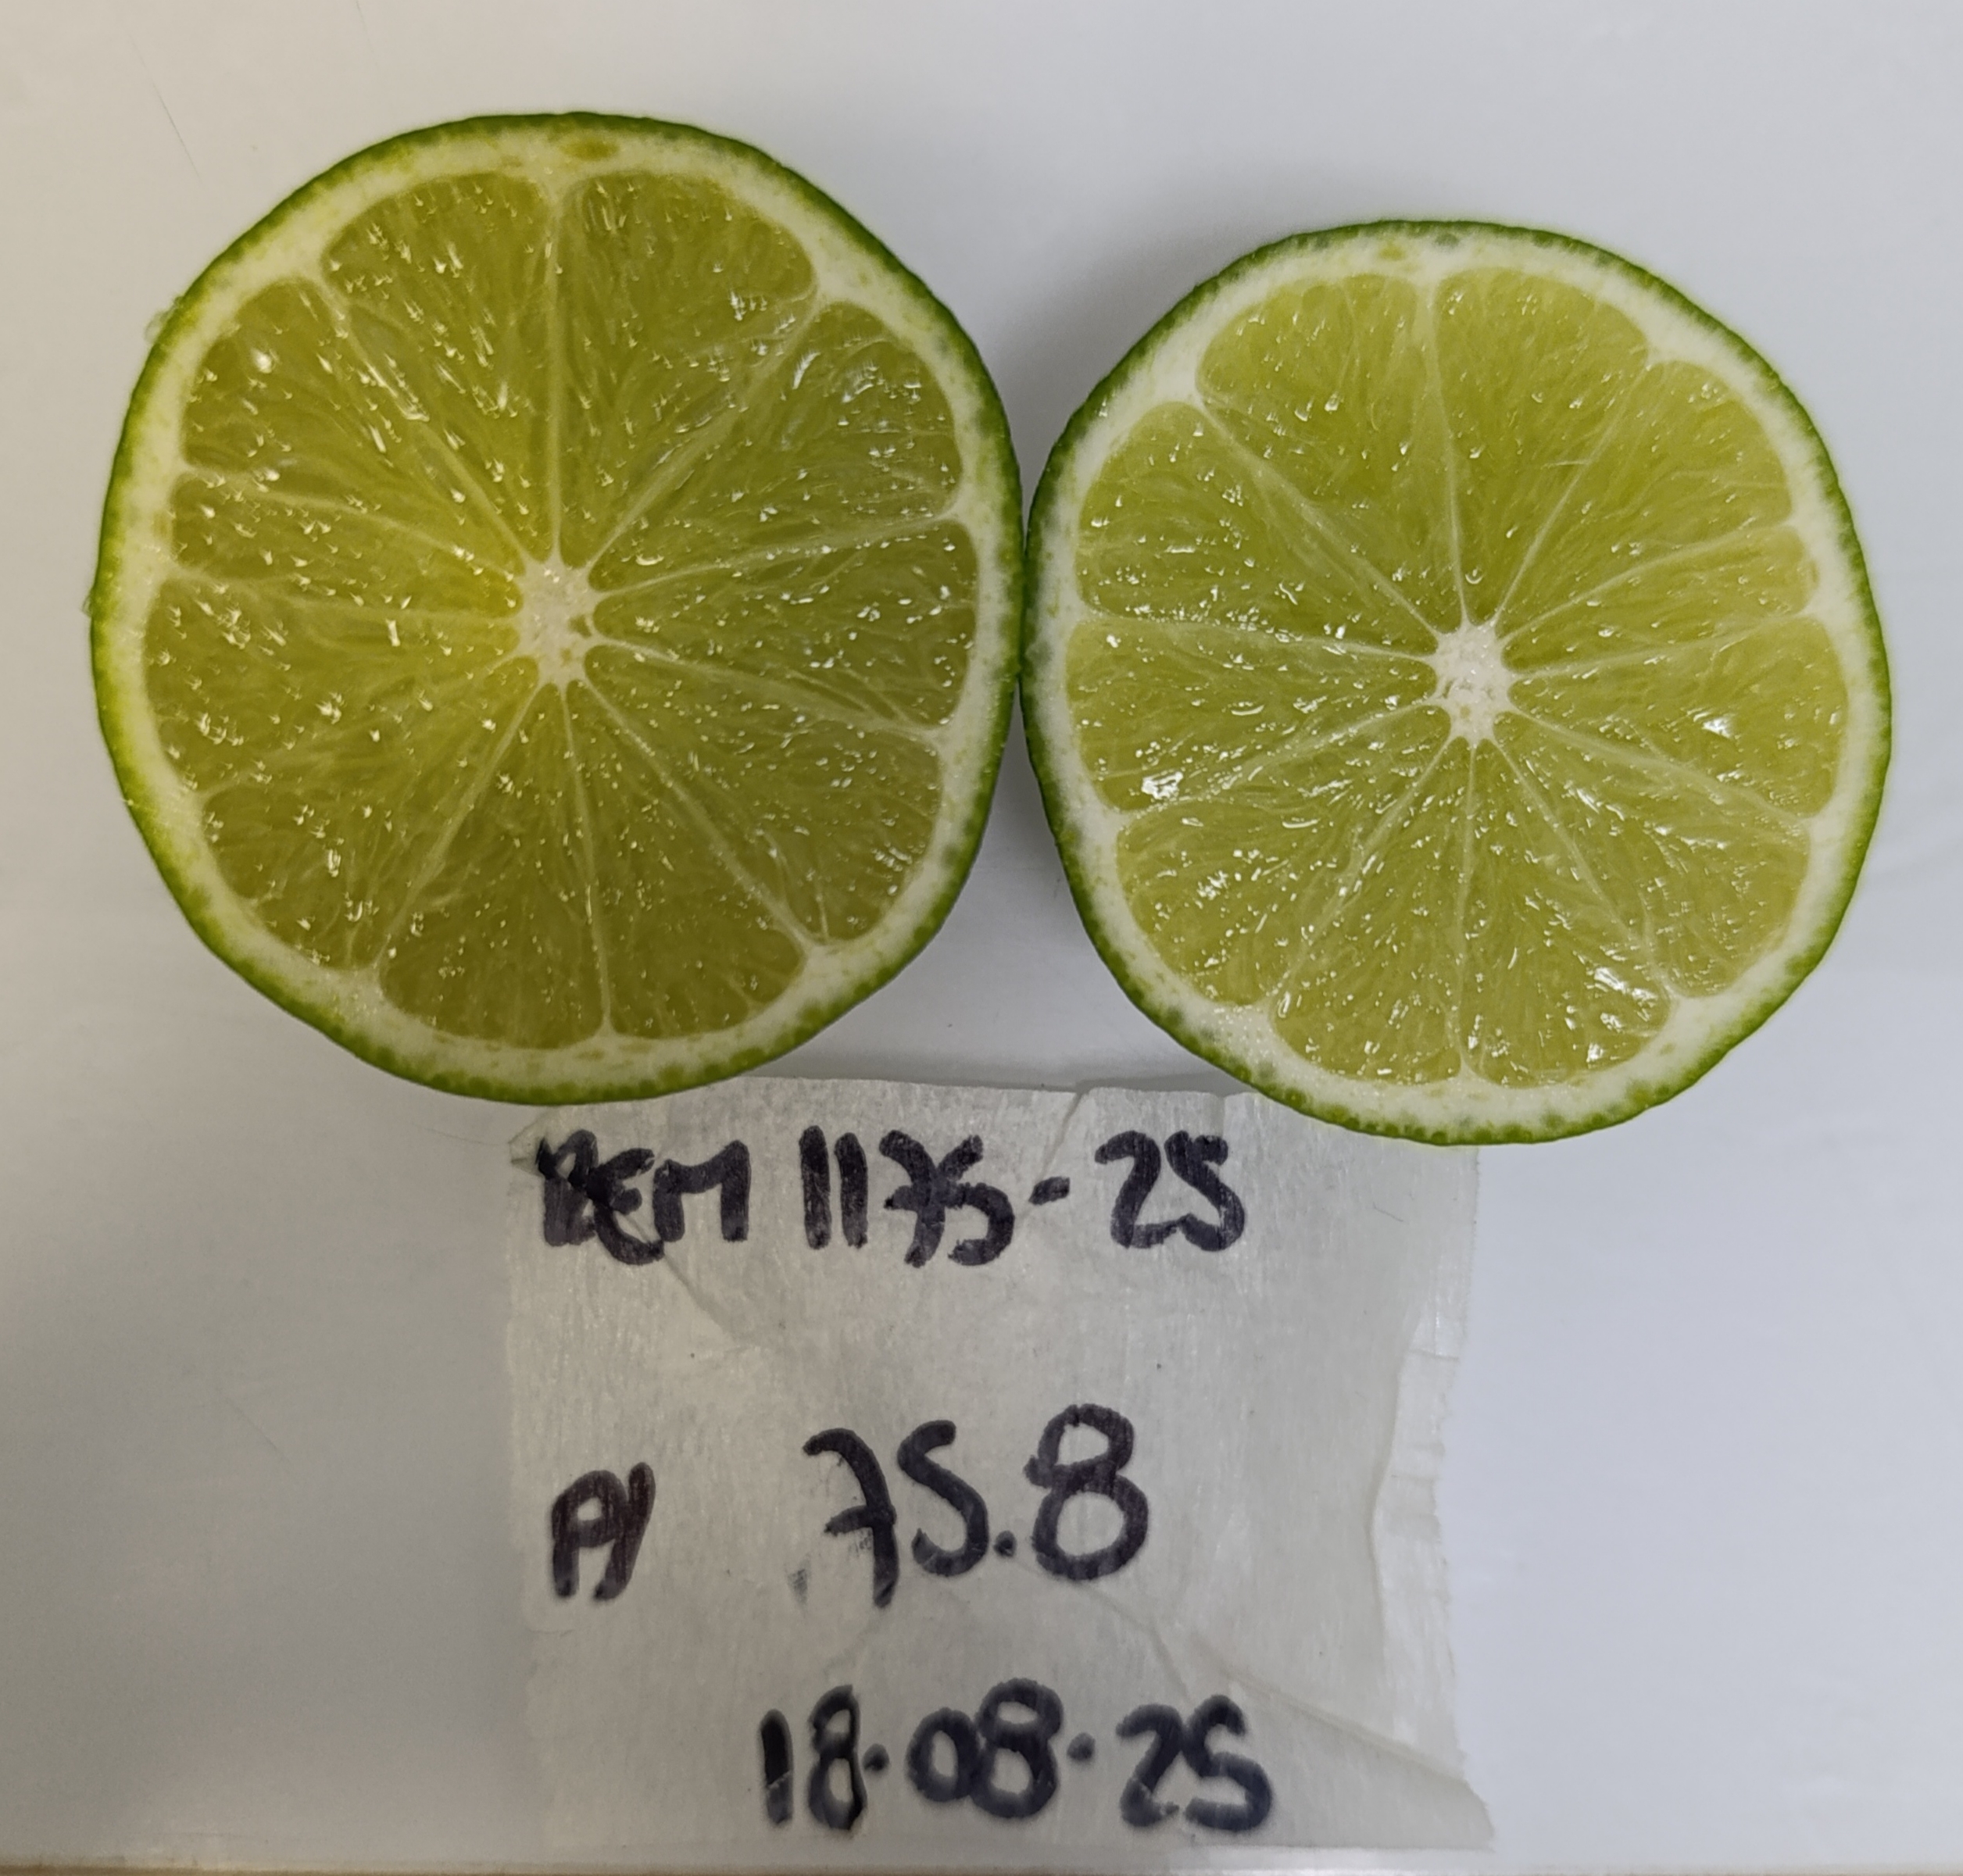 REM 1175-25
A) 75.8
18.08.25